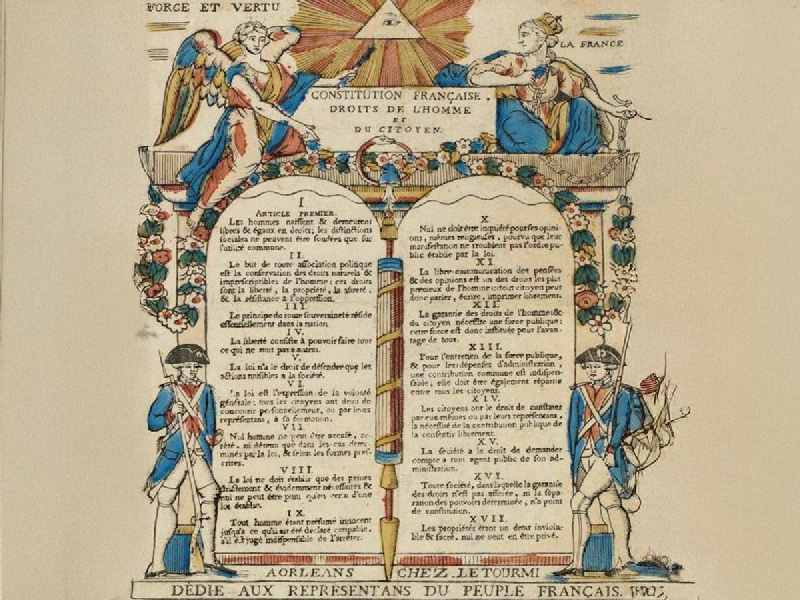 FORCE ET VERTU
LA FRANCE
CONSTITUTION FRANÇAISE.
DROITS DE L'HOMME
ET
DU CITOYEN.
I
ARTICLE PREMIER.
Les hommes naissent & demeurent
libres & égaux en droits; les distinctions
sociales ne peuvent être fondées que sur
l'utilité commune.
II.
Le but de toute association politique
est la conservation des droits naturels &
imprescriptibles de l'homme: ces droits
sont la liberté, la propriété, la sûreté,
& la résistance à l'oppression.
III.
Le principe de toute souveraineté réside
essentiellement dans la nation
IV.
La liberté consiste à pouvoir faire tout
ce qui ne nuit pas à autrui.
V.
La loi n'a le droit de défendre que les
actions nuisibles à la société.
VI.
La loi est l'expression de la volonté
générale; tous les citoyens ont droit de
concourir personnellement, ou par leurs
représentans, à sa formation.
VII.
Nul homme ne peut être accusé, ar-
rêté, ni détenu que dans les cas déter-
minés par la loi, & selon les formes pres-
crites.
VIII.
La loi ne doit établir que des peines
strictement & évidemment nécessaires &
nul ne peut être puni qu'en vertu d'une
loi établie.
IX.
Tout homme étant présumé innocent
jusqu'à ce qu'il ait été déclaré coupable,
s'il est jugé indispensable de l'arrêter.
X.
Nul ne doit être inquiété pour ses opini-
ons, mêmes religieuses, pourvu que leur
manifestation ne troublent pas l'ordre pu-
blic établie par la loi.
XI.
La libre communication des pensées
& des opinions est un des droits les plus
précieux de l'homme: tout citoyen peut
donc parler, écrire, imprimer librement.
XII.
La garantie des droits de l'homme &
du citoyen nécessite une force publique:
cette force est donc instituée pour l'avan-
tage de tous.
XIII.
Pour l'entretien de la force publique,
& pour les dépenses d'administration,
une contribution commune est indispen-
sable; elle doit être également répartie
entre tous les citoyens.
XIV.
Les citoyens ont le droit de constater
par eux-mêmes ou par leurs représentans,
la nécessité de la contribution publique de
la consentir librement.
XV.
La société a le droit de demander
compte à tout agent public de son ad-
ministration.
XVI.
Toute société, dans laquelle la garantie
des droits n'est pas assurée, ni la sépa-
ration des pouvoirs déterminée, n'a point
de constitution.
XVII.
Les propriétés étant un droit inviola-
ble & sacré, nul ne peut en être privé.
A ORLEANS CHEZ LETOURMI
DÉDIÉ AUX REPRÉSENTANS DU PEUPLE FRANÇAIS.